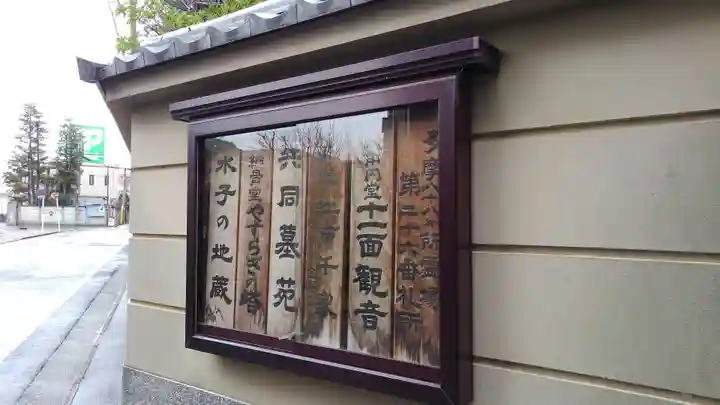 多摩八十八ヶ所霊場
第二十六番札所
十一面観音
共同墓苑
納骨堂やすらぎの塔
水子の地蔵
P